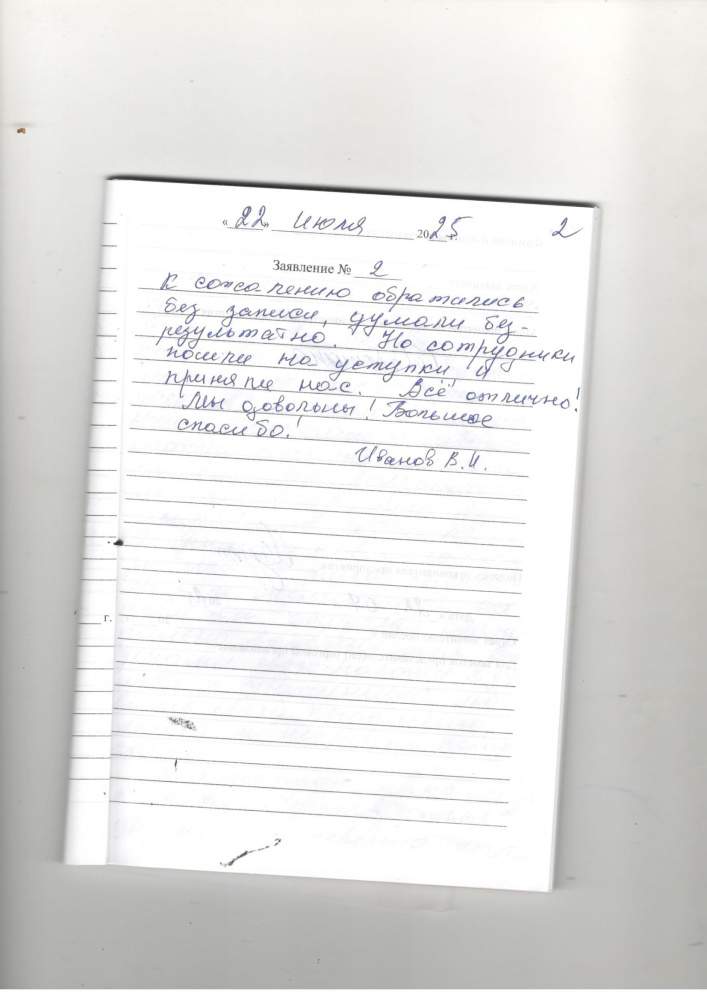 « 22 » июля 2025 г. 2
Заявление № 2
К сожалению обратились
без записи, думали без-
результатно. Но сотрудники
пошли на уступки и
приняли нас. Всё отлично!
Мы довольны! Большое
спасибо!
Иванов В.И.
г.